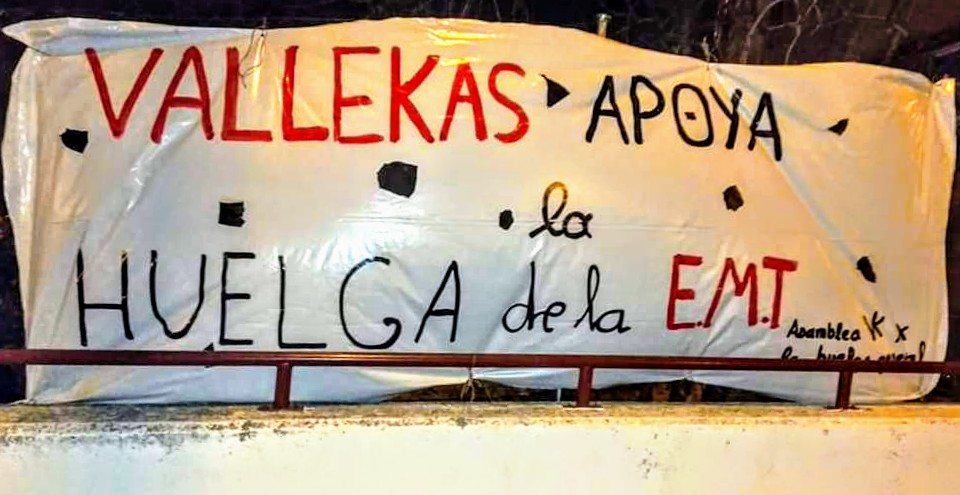 VALLEKAS APOYA
la
HUELGA de la E.M.T
Asamblea K x
la huelga